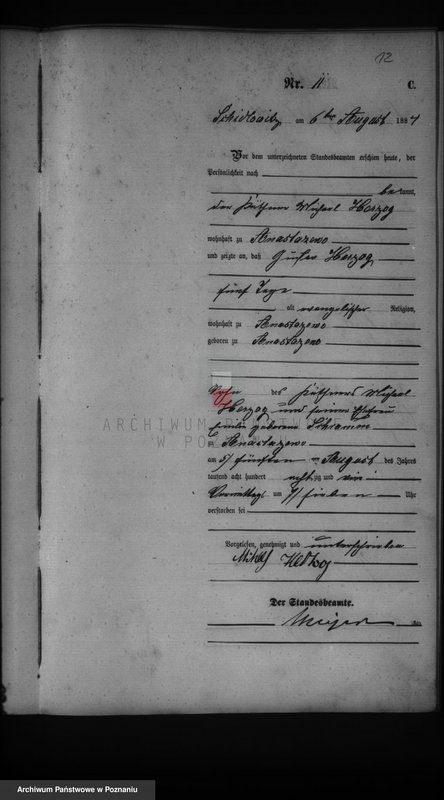 12
Nr. 11 C.
am 6ten August 188
Vor dem unterzeichneten Standesbeamten erschien heute, der
Persönlichkeit nach
bekannt,
der Michael Herzog
wohnhaft zu Anastazewo
und zeigte an, daß Gustav Herzog
fünf Tage
alt evangelischer Religion,
wohnhaft zu Anastazewo
geboren zu Anastazewo
Sohn des Michael
Herzog und seiner Ehefrau
geborene Schramm
zu Anastazewo
am 5/ fünften August des Jahres
tausend acht hundert achtzig und
Vormittags um 7/ sieben Uhr
verstorben sei
Vorgelesen, genehmigt und unterschrieben
Der Standesbeamte.
ARCHIWUM PAŃSTWOWE
W POZNANIU
Archiwum Państwowe w Poznaniu